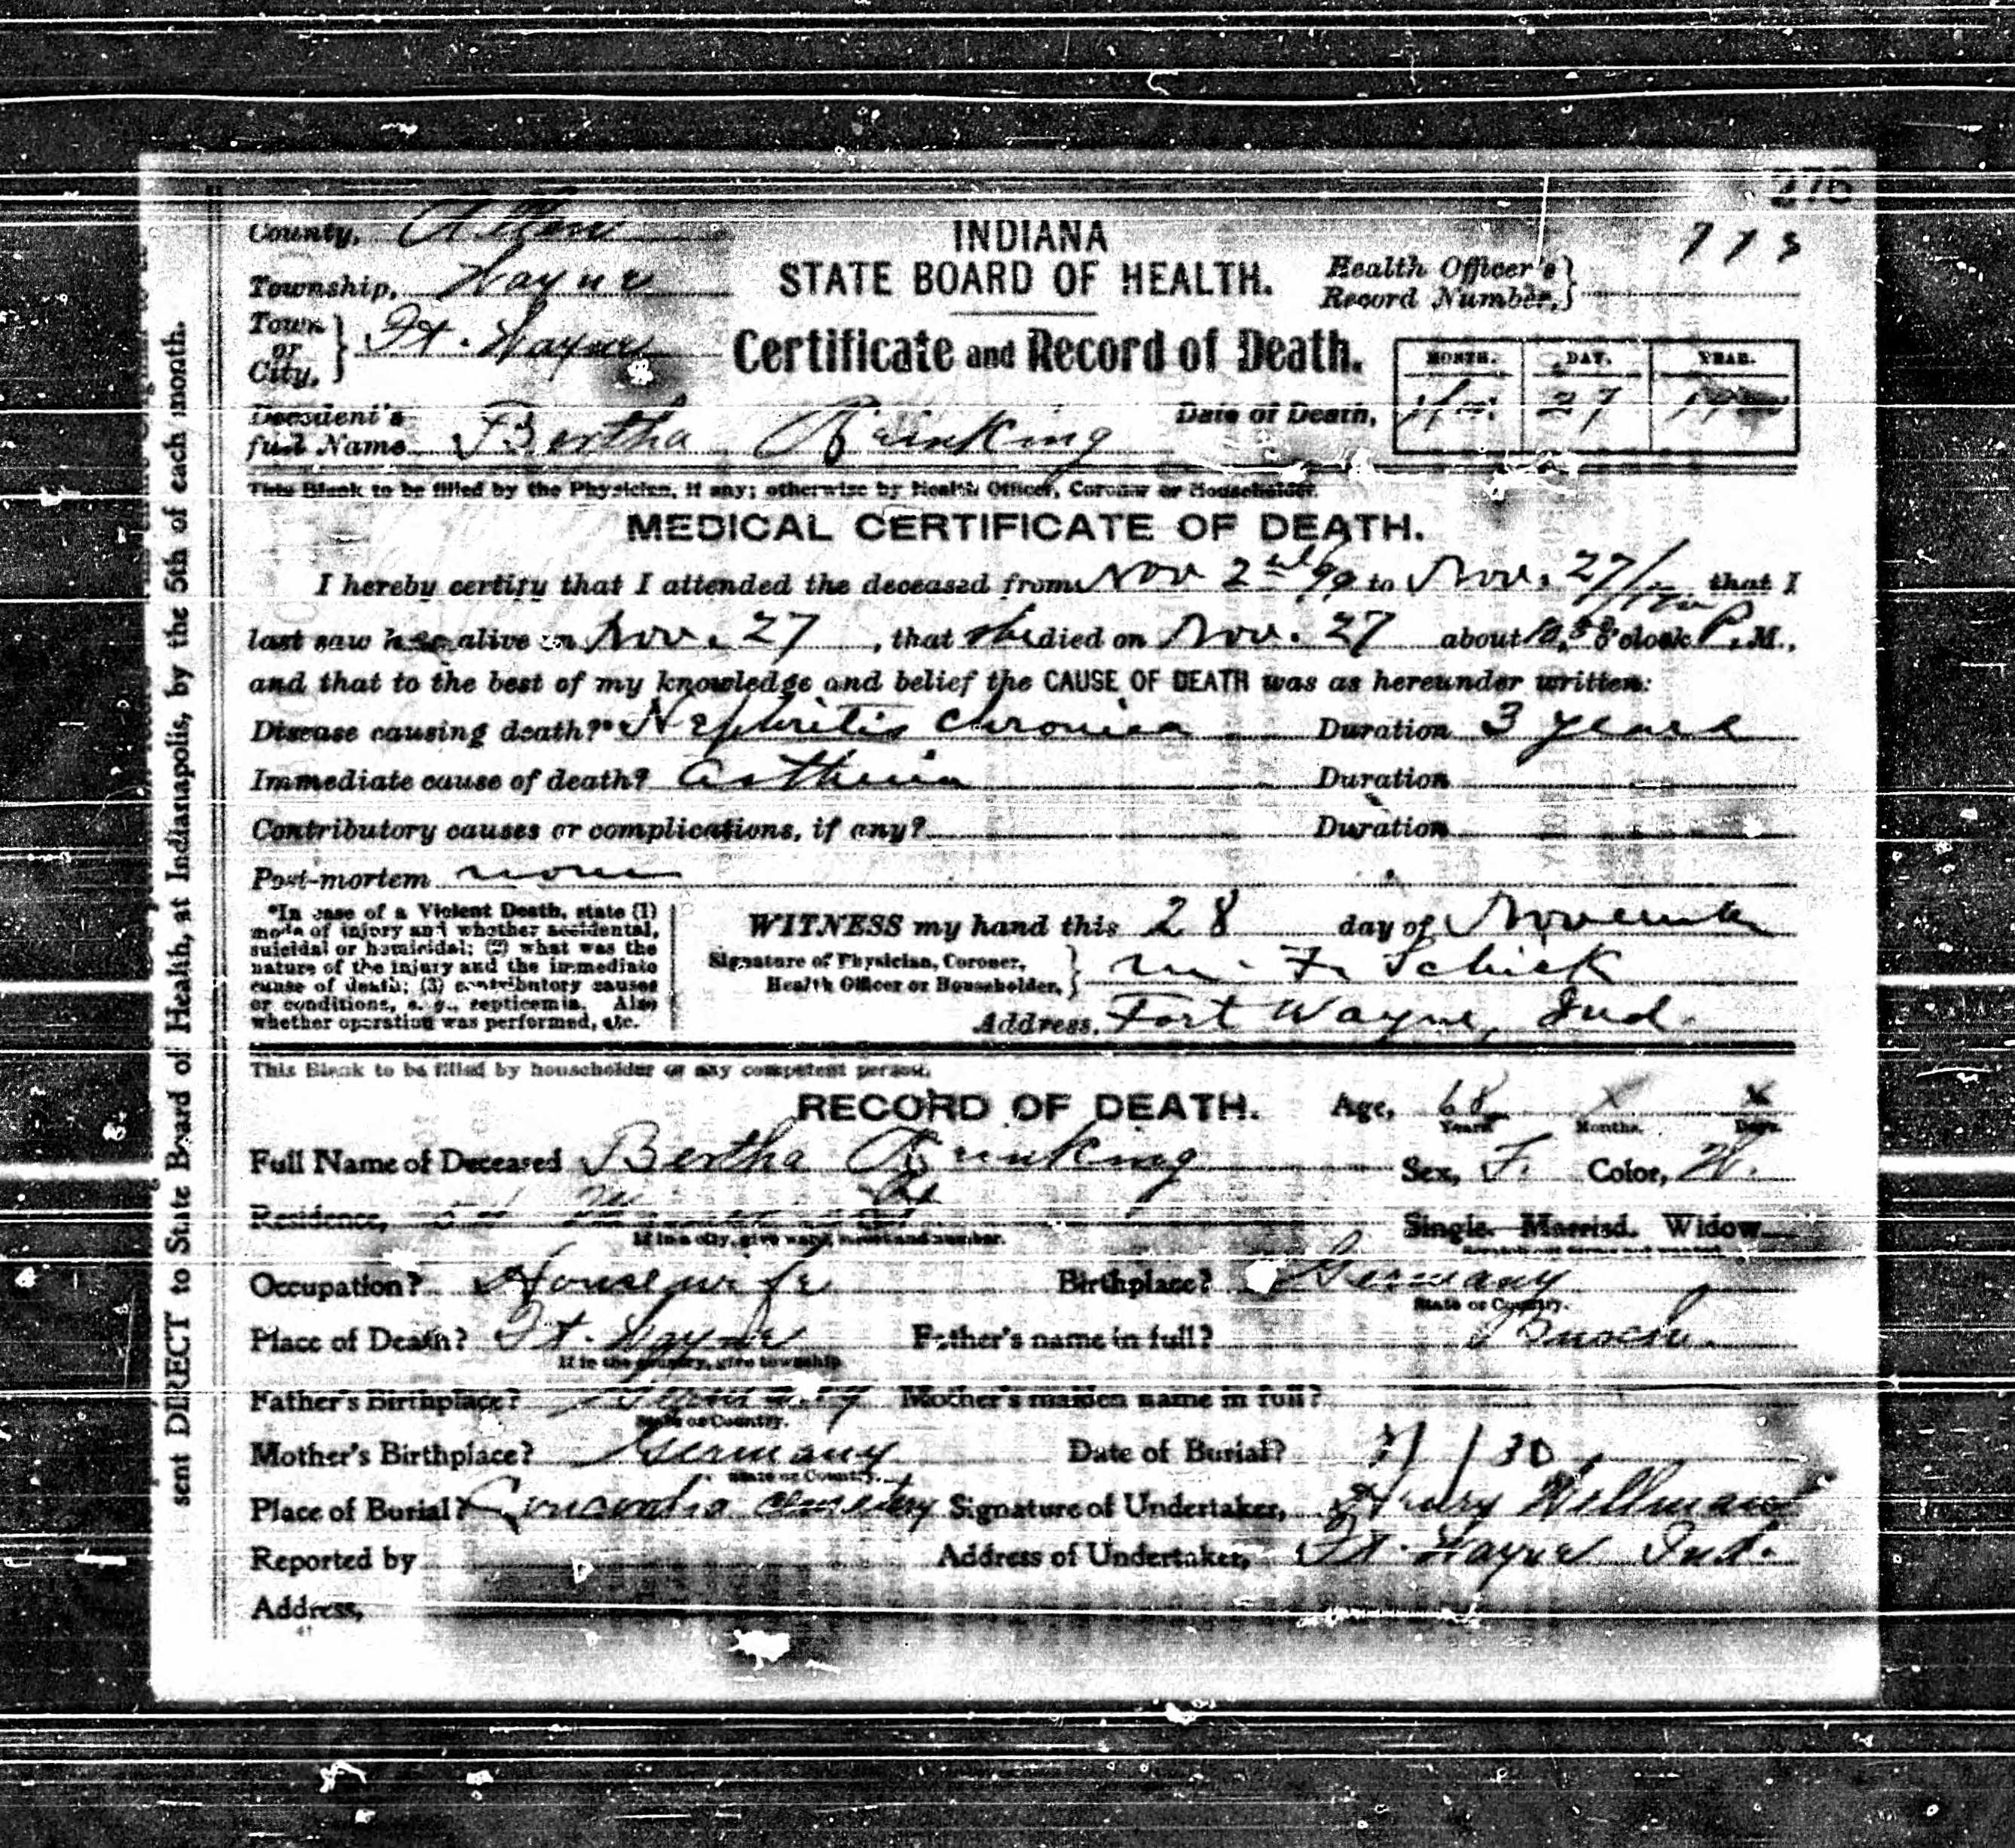 276
County, Allen
INDIANA
773
Township, Wayne
STATE BOARD OF HEALTH.
Health Officer's Record Number,
Town or City, Ft. Wayne
Certificate and Record of Death.
MONTH. DAY. YEAR.
Decedent's full Name Bertha Brinking
Date of Death, 27
This Blank to be filled by the Physician, if any; otherwise by Health Officer, Coroner or Householder.
MEDICAL CERTIFICATE OF DEATH.
I hereby certify that I attended the deceased from Nov 2nd 99 to Nov. 27/ that I
last saw her alive on Nov. 27, that she died on Nov. 27 about 10, o'clock P.M.,
and that to the best of my knowledge and belief the CAUSE OF DEATH was as hereunder written:
Disease causing death?* Nephritis chronica Duration 3 years
Immediate cause of death? Asthenia Duration
Contributory causes or complications, if any? Duration
Post-mortem none
*In case of a Violent Death, state (1)
mode of injury and whether accidental,
suicidal or homicidal; (2) what was the
nature of the injury and the immediate
cause of death; (3) contributory causes
or conditions, e. g., septicemia. Also
whether operation was performed, etc.
WITNESS my hand this 28 day of November
Signature of Physician, Coroner, Health Officer or Householder, M. F. Schick
Address, Fort Wayne, Ind.
This Blank to be filled by householder or any competent person.
RECORD OF DEATH.
Age, 68 x x
Years Months. Days.
Full Name of Deceased Bertha Brinking Sex, F. Color, W.
Residence, St
If in a city, give ward, street and number.
Single. Married. Widow
Occupation? Housewife Birthplace? Germany
State or Country.
Place of Death? Ft. Wayne Father's name in full? Busch.
If in the country, give township
Father's Birthplace? Germany Mother's maiden name in full?
State or Country.
Mother's Birthplace? Germany Date of Burial? 11/30
State or Country.
Place of Burial? Concordia Cemetery Signature of Undertaker, Henry Wellman
Reported by Address of Undertaker, Ft. Wayne Ind.
Address,
41
sent DIRECT to State Board of Health, at Indianapolis, by the 5th of each month.